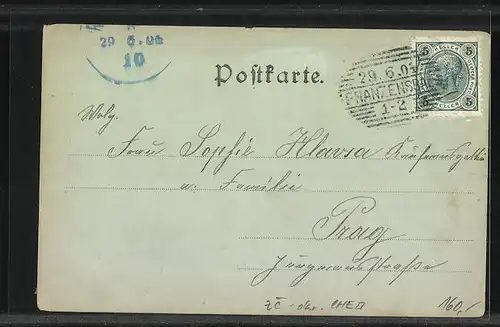 29 6. 06
10
Postkarte.
29.6.0
FRANZENSB
1-2
5 HELLER 5
5 HELLER 5
Wolg.
Frau Sophie Hlavsa Kaufmannsgattin
u. Familie
Prag
Jungmannstraße
ZČ - okr. CHEB
160,-